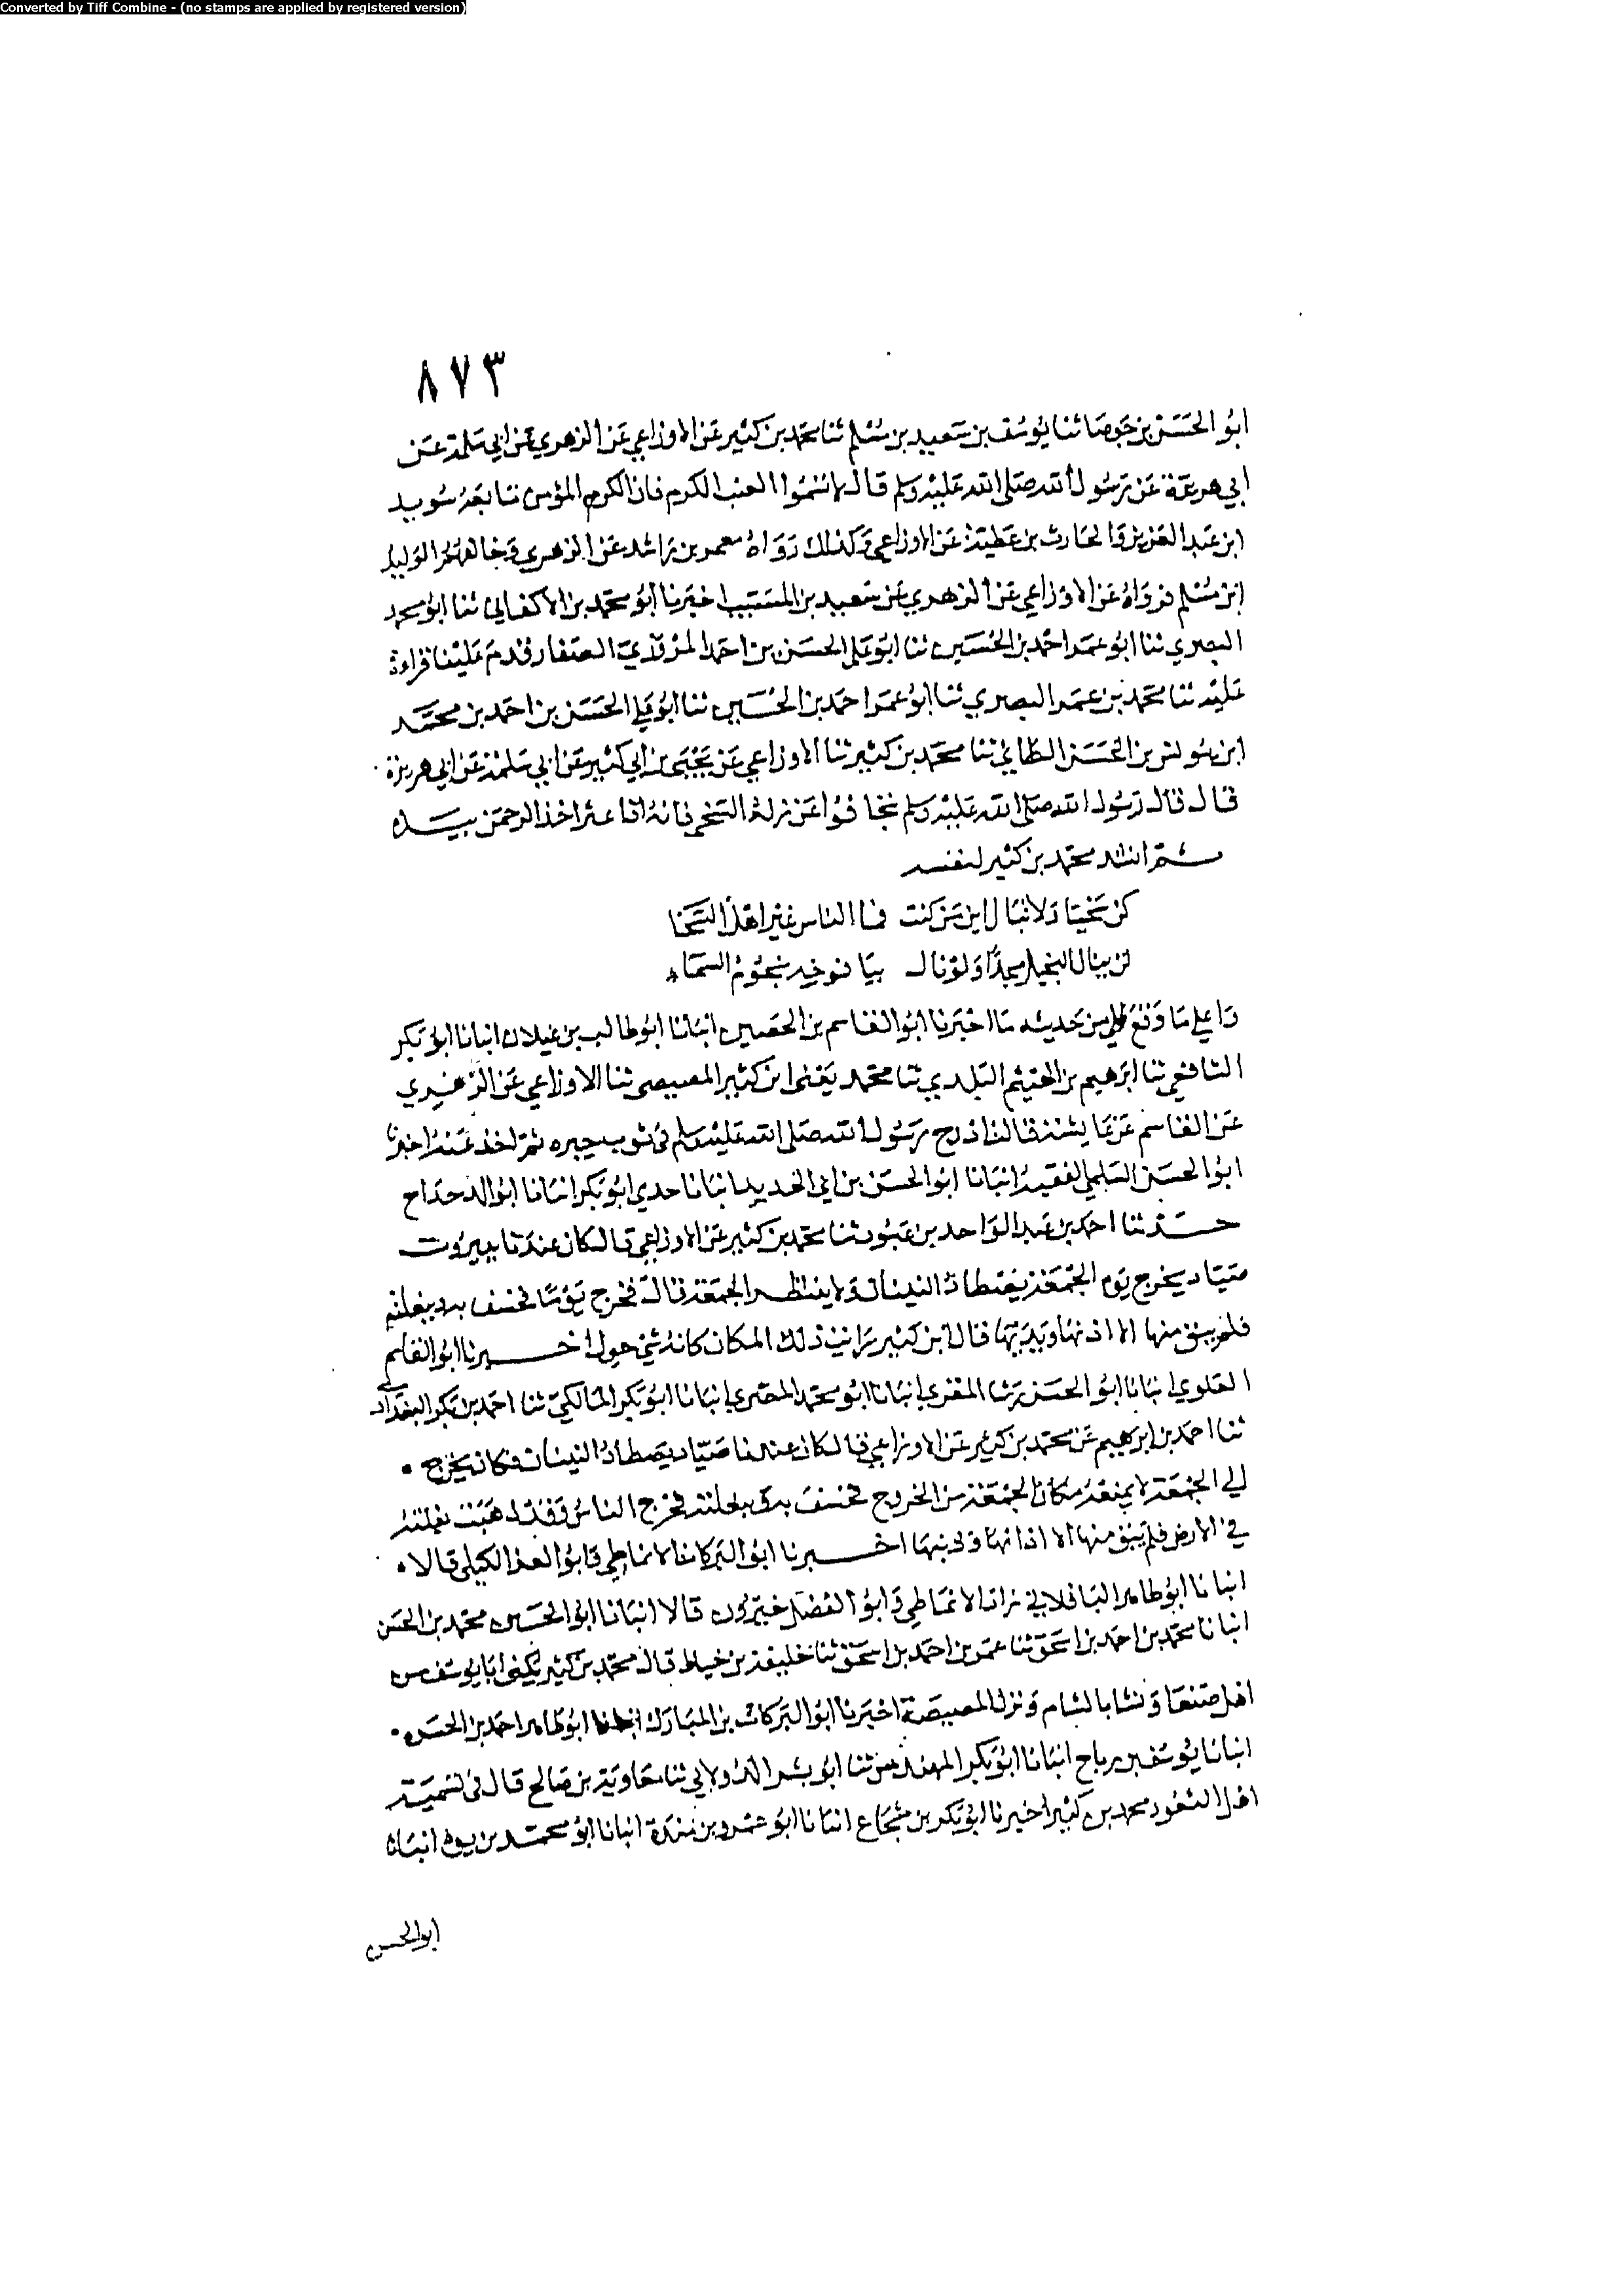 Converted by Tiff Combine - (no stamps are applied by registered version)
٨٧٣
ابو الحسن بن جوصا ثنا يوسف بن سعيد بن مسلم ثنا محمد بن كثير عن الاوزاعي عن الزهري عن ابي سلمة عن
ابي هريرة عن رسول الله صلى الله عليه وسلم قال لا تسموا العنب الكرم فان الكرم المؤمن تابعه سويد
ابن عبد العزيز والحارث بن عطية عن الاوزاعي وكذلك رواه معمر بن راشد عن الزهري وخالفهم الوليد
ابن مسلم فرواه عن الاوزاعي عن الزهري عن سعيد بن المسيب اخبرنا ابو محمد بن الاكفاني ثنا ابو محمد
البصري ثنا ابو عمر احمد بن الحسين ثنا ابو علي الحسن بن احمد الصفار قدم علينا قراءة
عليه ثنا محمد بن عمر البصري ثنا ابو عمر احمد بن الحسين ثنا ابو علي الحسن بن احمد بن محمد
ابن يونس بن الحسن الطائي ثنا محمد بن كثير ثنا الاوزاعي عن يحيى بن ابي كثير عن ابي سلمة عن ابي هريرة
قال قال رسول الله صلى الله عليه وسلم تجافوا عن زلة السخي فانه اذا عثر اخذ الرحمن بيده
ثم انشد محمد بن كثير لنفسه
كن سخيا ولا تبال ابن من كنت فما الناس غير اهل السخا
لن ينال البخيل مجدا ولو نال بيافوخه نجوم السماء
واعلى ما وقع لي من حديثه ما اخبرنا ابو القاسم بن الحصين انبانا ابو طالب بن غيلان انبانا ابو بكر
الشافعي ثنا ابرهيم بن الهيثم البلدي ثنا محمد يعني ابن كثير المصيصي ثنا الاوزاعي عن الزهري
عن القاسم عن عايشة قالت ادرج رسول الله صلى الله عليه وسلم في ثوب حبره ثم اخذ عنه اخبرنا
ابو الحسن السلمي الفقيه انبانا ابو الحسن بن ابي الحديد انبانا جدي ابو بكر انبانا ابو الدحداح
حدثنا احمد بن عبد الواحد بن عبود ثنا محمد بن كثير عن الاوزاعي قال كان عندنا ببيروت
صياد يخرج يوم الجمعة يصطاد النينان ولا ينتظر الجمعة قال فخرج يوما فخسف به ببغلته
فلم يبق منها الا اذنها وبدنها قال ابن كثير رايت ذلك المكان كانه شي اخبرنا ابو القاسم
العلوي انبانا ابو الحسن رشا المقري انبانا ابو محمد المصري انبانا ابو بكر المالكي ثنا احمد بن بكر البغدادي
ثنا احمد بن ابرهيم عن محمد بن كثير عن الاوزاعي قال كان عندنا صياد يصطاد النينان فكان يخرج
الى الجمعة لا يمنعه مكان الجمعة من الخروج فخسف به وببغلته فخرج الناس وقد ذهبت بغلته
في الارض فلم يبق منها الا اذناها وذنبها اخبرنا ابو البركات الانماطي وابو العز الكيلي قالا
انبانا ابو طاهر الباقلاني زاد الانماطي وابو الفضل خيرون قالا انبانا ابو الحسين محمد بن الحسن
انبانا محمد بن احمد بن اسحق ثنا عمر بن احمد بن اسحق ثنا خليفة بن خياط قال محمد بن كثير يكنى ابا يوسف من
اهل صنعا ونشا بالشام ونزل المصيصة اخبرنا ابو البركات بن المبارك انبانا ابو طاهر احمد بن الحسن
انبانا يوسف بن رباح انبانا ابو بكر المهندس ثنا ابو بشر الدولابي ثنا معاوية بن صالح قال في تسمية
اهل الثغور محمد بن كثير اخبرنا ابو بكر بن شجاع انبانا ابو عمرو بن مندة انبانا ابو محمد بن يوه انبانا
ابو الحسن